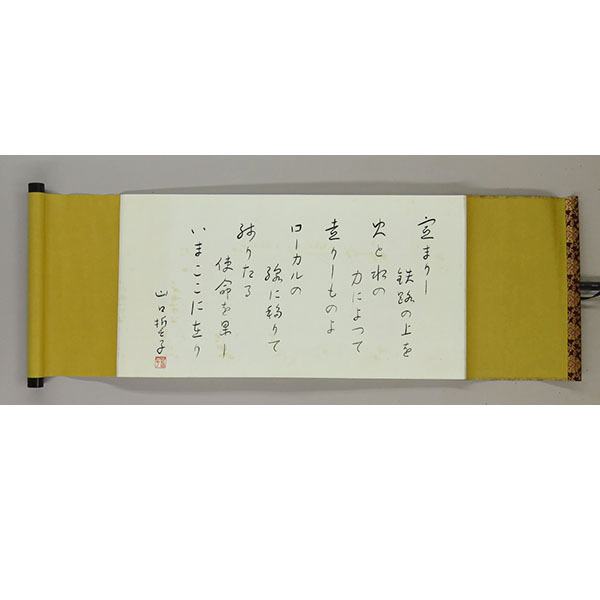 定まりし
鉄路の上を
火と水の
力によつて
走りしものよ
ローカルの
線に移りて
終りたる
使命を果し
いまここに在り
山口誓子